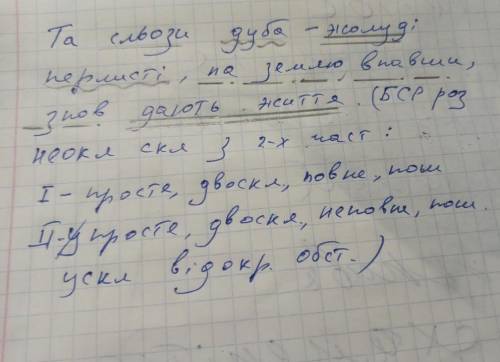 Та сльози дуба – жолуді
перлисті, на землю впавши,
знов дають життя. (БСР роз
неокл скл з 2-х част:
I – просте, двоскл, повне, пош
II – просте, двоскл, неповне, пош.
ускл відокр. обст.)